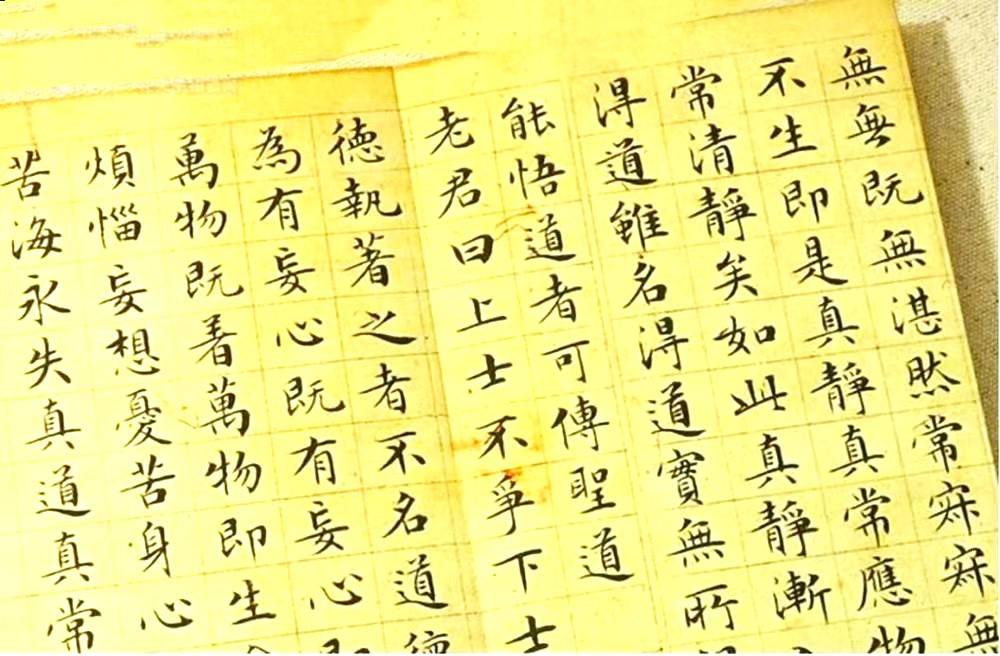 無無既無湛然常寂寂無
不生即是真靜真常應物
常清靜矣如此真靜漸
得道雖名得道實無所
能悟道者可傳聖道
老君曰上士不爭下士
德執著之者不名道德
為有妄心既有妄心即
萬物既着萬物即生
煩惱妄想憂苦身心
苦海永失真道真常